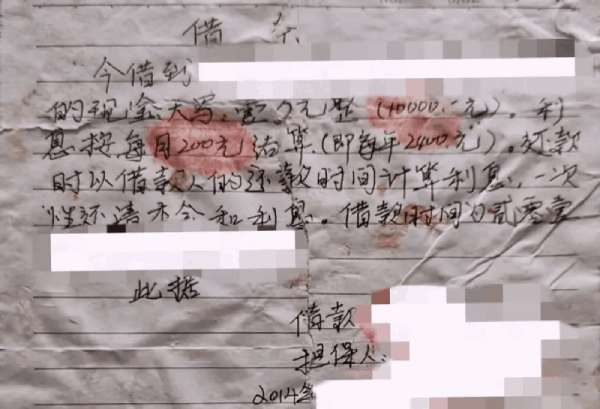 借条
今借到
的现金大写:壹万元整(10000.-元)。利
息按每月200元结算(即每年2400元)。还款
时以借款人的还款时间计算利息,一次
性还清本金和利息。借款时间为贰零壹
此据
借款
担保人:
2014年